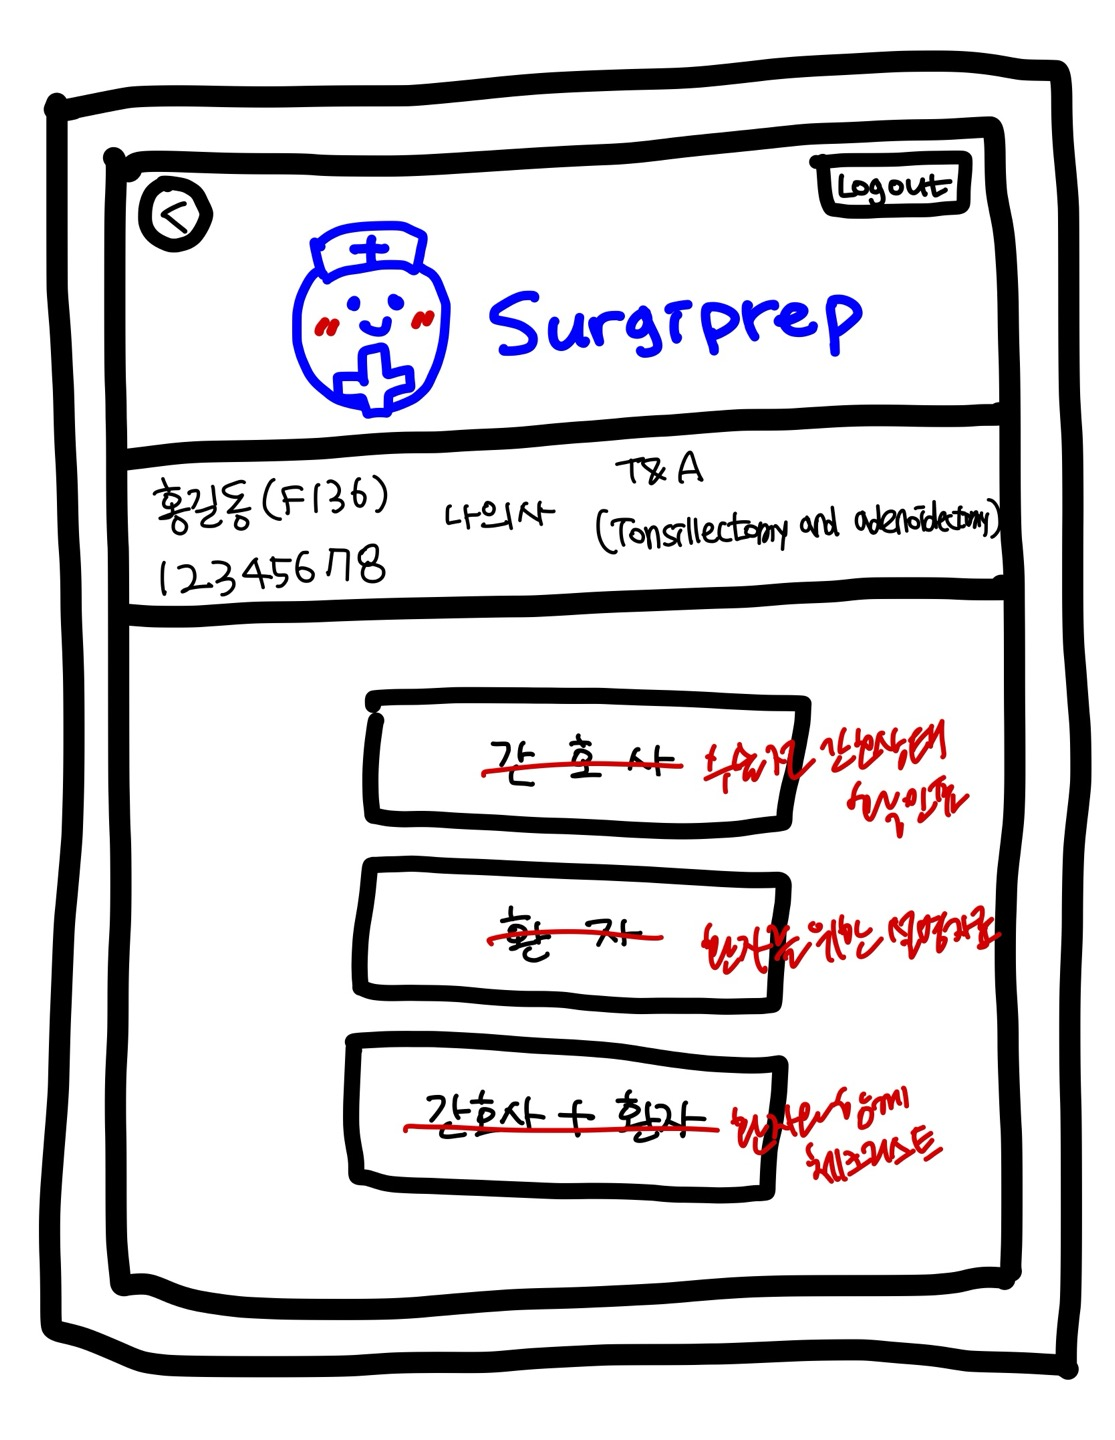 <
Logout
Surgiprep
홍길동(F136)
12345678
나의사
T&A
(Tonsillectomy and adenoidectomy)
간 호 사 수술전 간호상태
확인표
환 자 환자를 위한 설명자료
간호사 + 환자 환자와 함께
체크리스트